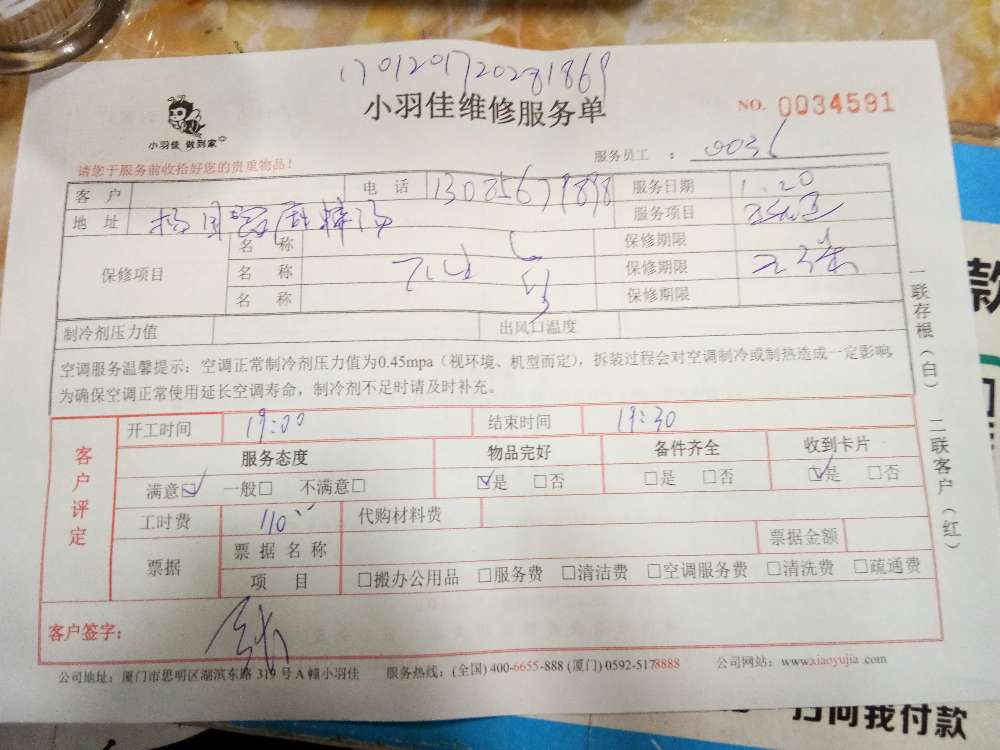 1701201720281869
小羽佳 做到家
小羽佳维修服务单
NO. 0034591
服务员工 ： 0036
请您于服务前收拾好您的贵重物品！
客 户 电 话 服务日期 1.20
地 址 服务项目
保修项目
名 称 保修期限
名 称 保修期限
名 称 保修期限
制冷剂压力值 出风口温度
空调服务温馨提示：空调正常制冷剂压力值为0.45mpa（视环境、机型而定），拆装过程会对空调制冷或制热造成一定影响，
为确保空调正常使用延长空调寿命，制冷剂不足时请及时补充。
一联存根（白） 二联客户（红）
客户评定
开工时间 19:00 结束时间 19:30
服务态度 物品完好 备件齐全 收到卡片
满意☑ 一般□ 不满意□ ☑是 □否 □是 □否 ☑是 □否
工时费 110 代购材料费
票据
票据名称 票据金额
项 目 □搬办公用品 □服务费 □清洁费 □空调服务费 □清洗费 □疏通费
客户签字：
公司地址：厦门市思明区湖滨东路 319 号 A 幢小羽佳 服务热线：(全国) 400-6655-888 (厦门) 0592-5178888 公司网站：www.xiaoyujia.com
款
扫问我付款